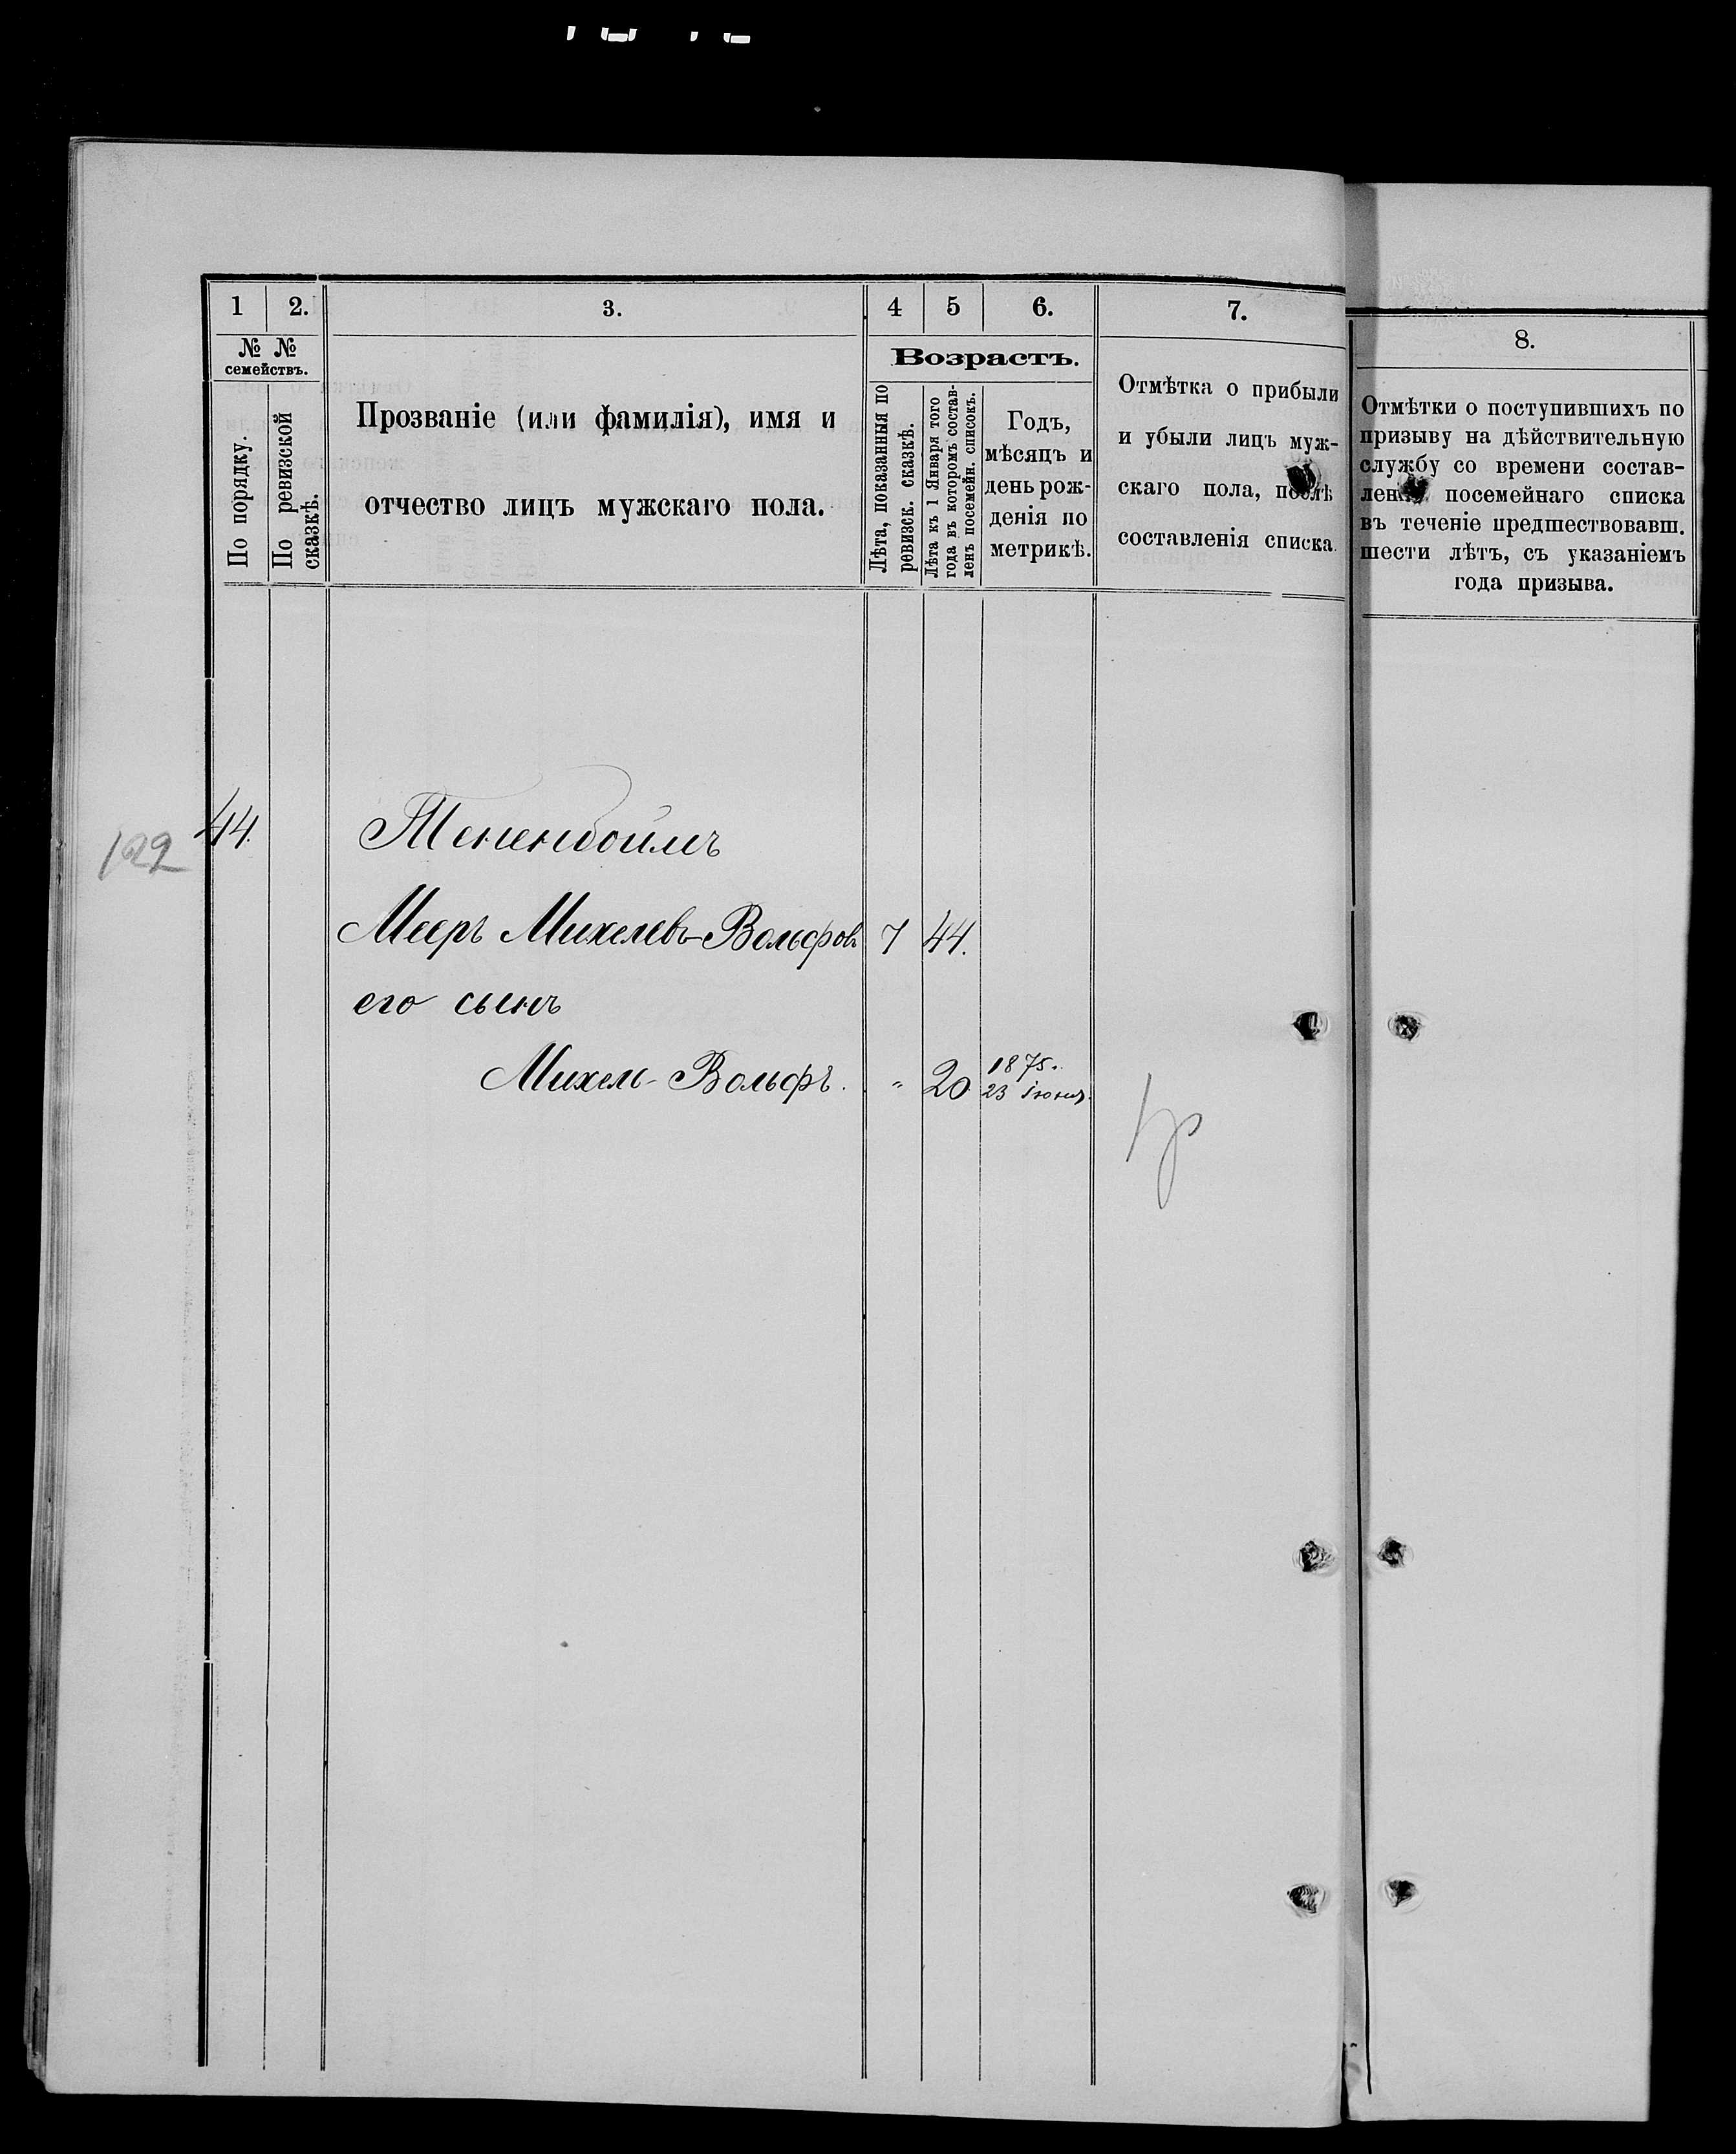 1 2. 3. 4 5 6. 7. 8.
№ № семействъ.
По порядку.
По ревизской сказкѣ.
Прозваніе (или фамилія), имя и
отчество лицъ мужскаго пола.
Возрастъ.
Лѣта, показанныя по
ревизск. сказкѣ.
Лѣта къ 1 Января того
года въ которомъ состав-
ленъ посемейн. списокъ.
Годъ,
мѣсяцъ и
день рож-
денія по
метрикѣ.
Отмѣтка о прибыли
и убыли лицъ муж-
скаго пола, послѣ
составленія списка.
Отмѣтки о поступившихъ по
призыву на дѣйствительную
службу со времени состав-
ленія посемейнаго списка
въ теченіе предшествовавш.
шести лѣтъ, съ указаніемъ
года призыва.
122
44. Тененбоимъ
Мееръ Михелевъ-Вольфовъ 7 44.
его сынъ
Михель-Вольфъ. " 20 1875.
23 іюня.